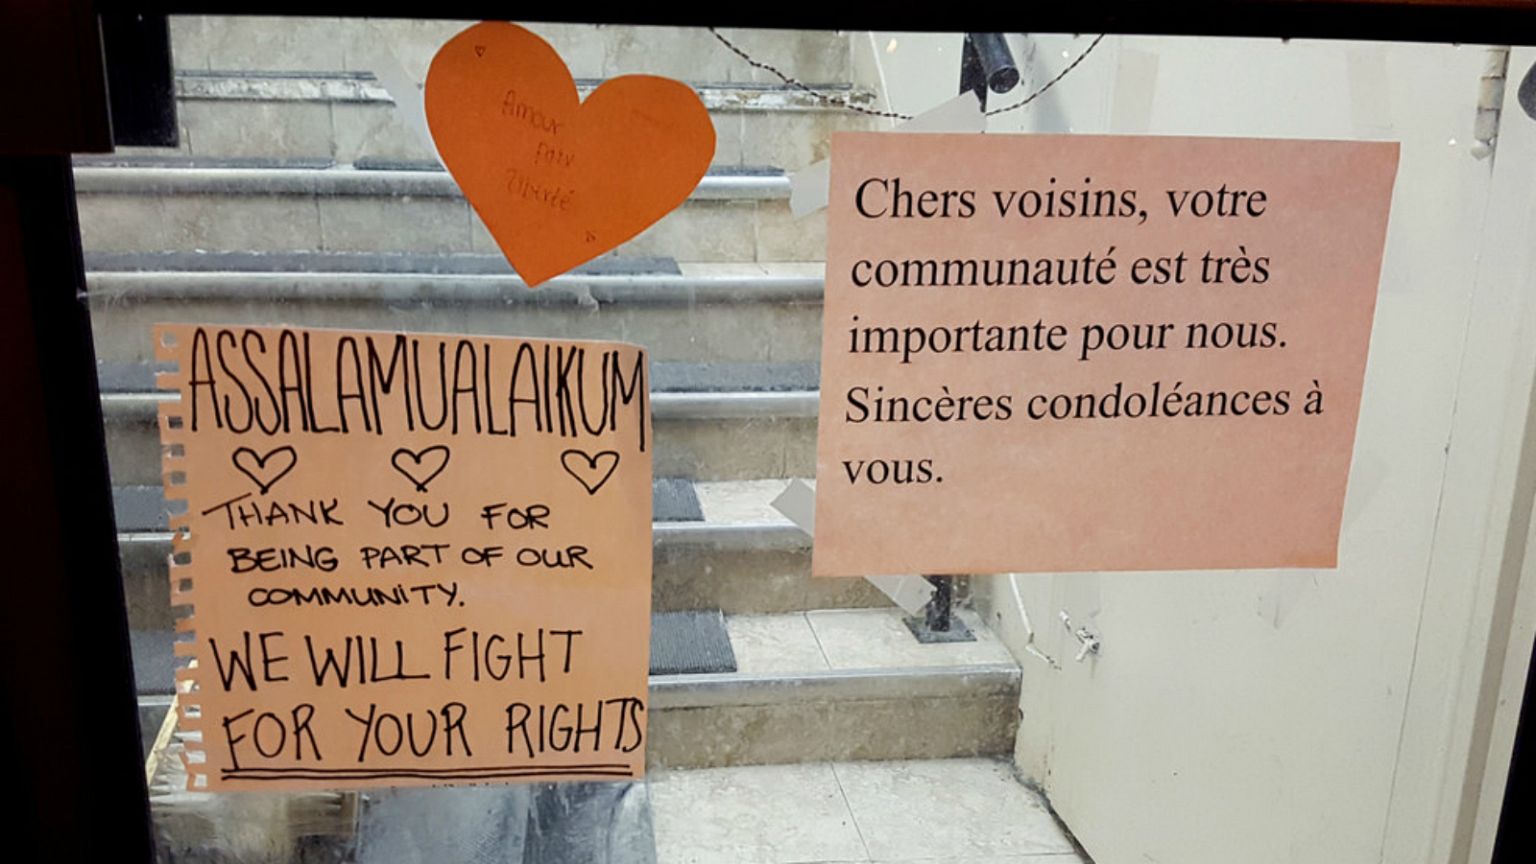 Amour
Paix
Liberté
Chers voisins, votre
communauté est très
importante pour nous.
Sincères condoléances à
vous.
ASSALAMUALAIKUM
THANK YOU FOR
BEING PART OF OUR
COMMUNITY.
WE WILL FIGHT
FOR YOUR RIGHTS